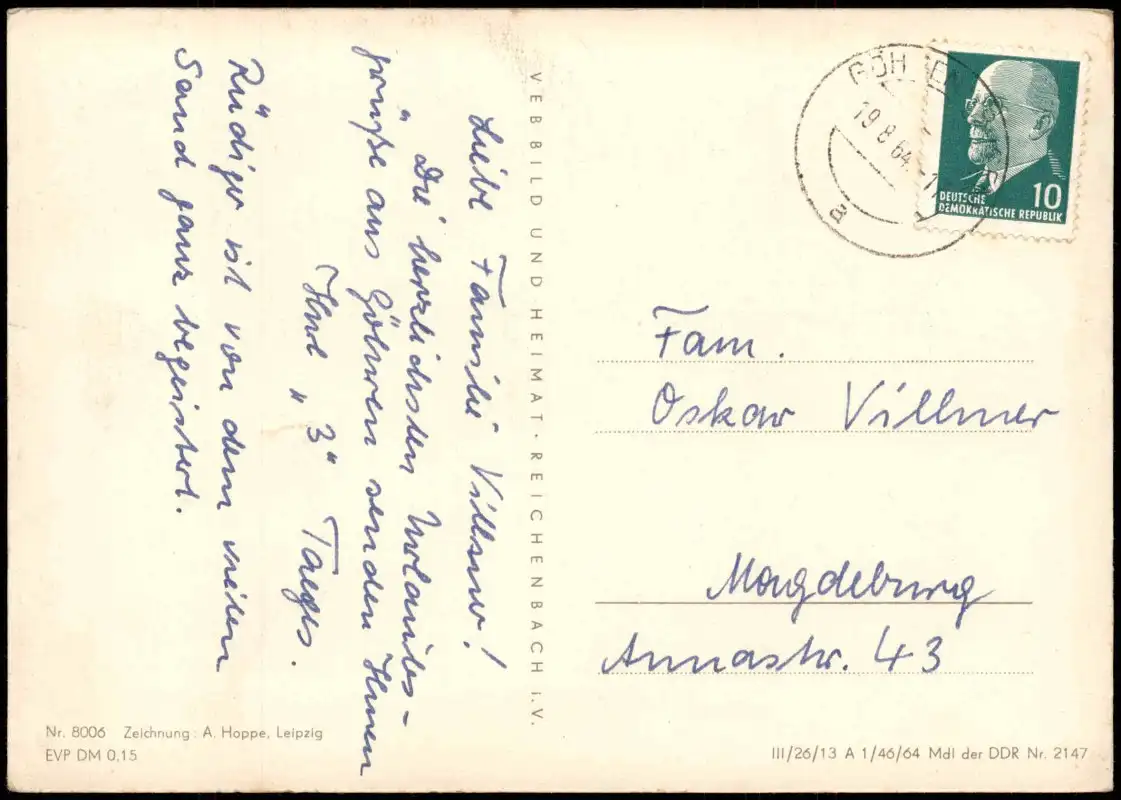 Liebe Familie Villmer!
Die herzlichsten Urlaubs-
grüße aus Göhren senden Ihnen
Ihre „3“ Taeges.
Rüdiger ist von dem vielen
Sand ganz begeistert.
VEB BILD UND HEIMAT · REICHENBACH i. V.
19.8.64
a
10
DEUTSCHE
DEMOKRATISCHE REPUBLIK
Fam.
Oskar Villmer
Magdeburg
Annastr. 43
Nr. 8006 Zeichnung: A. Hoppe, Leipzig
EVP DM 0,15
III/26/13 A 1/46/64 MdI der DDR Nr. 2147